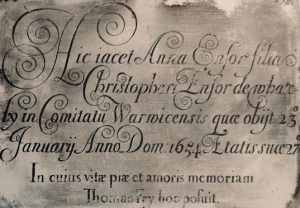 Hic iacet Anna Ensor filia
Christopheri Ensor de
by in Comitatu Warwicensis quæ obijt 23
January Anno Dom: 1654 Etatis suæ 27
In cuius vitæ piæ et amoris memoriam
Thomas Fry hoc posuit.